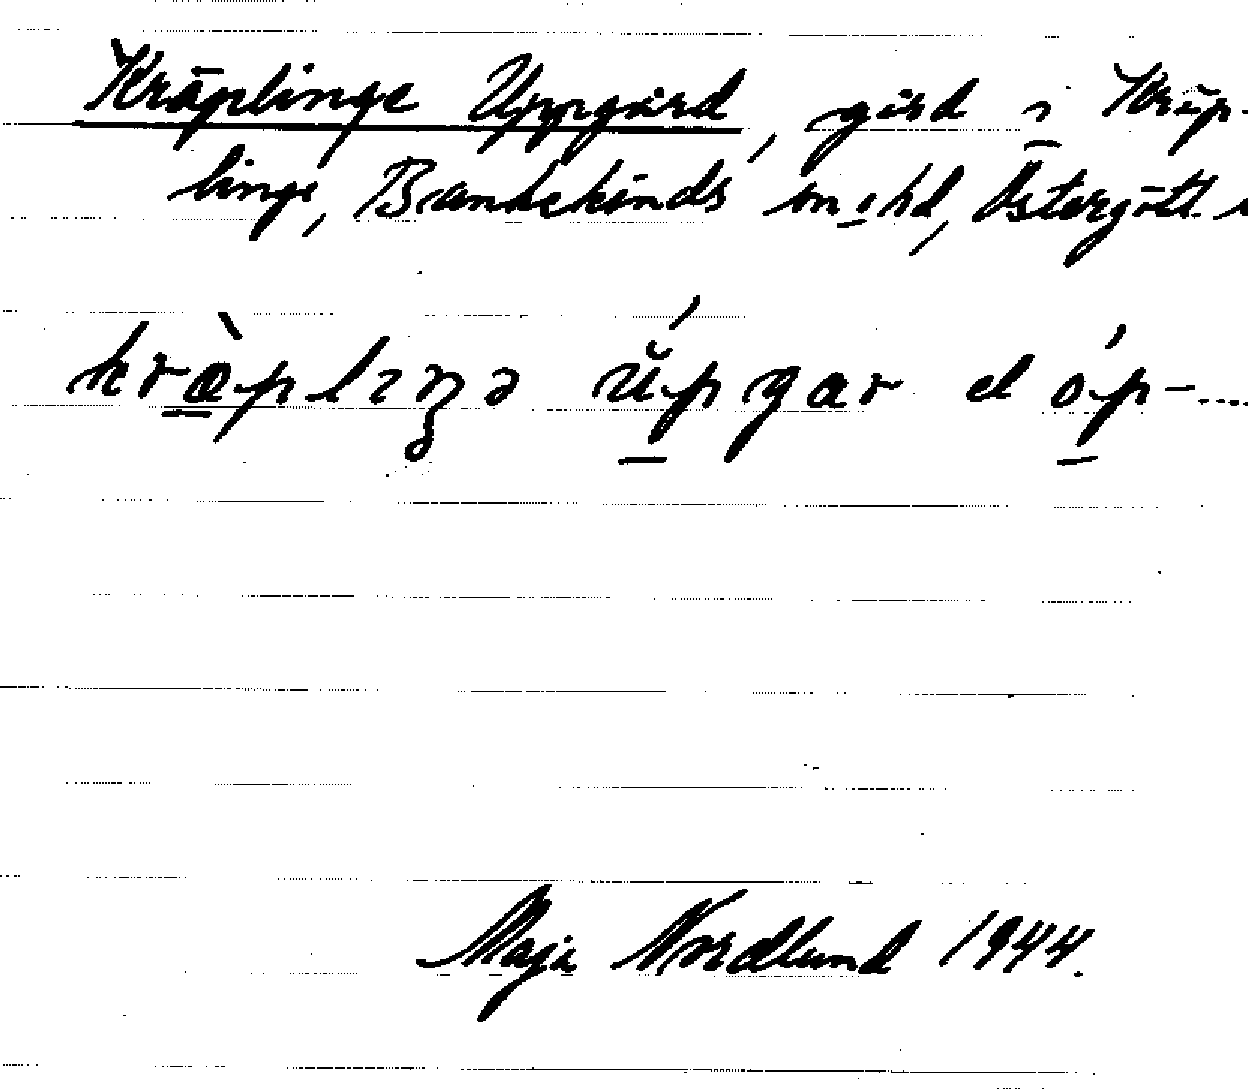 Kräplinge Uppgård, gård i Kräp-
linge, Bankekinds sn o hd, Östergötl.
kræ̀plıŋə ŭ́pgar el óp-....
Maja Nordlund 1944.